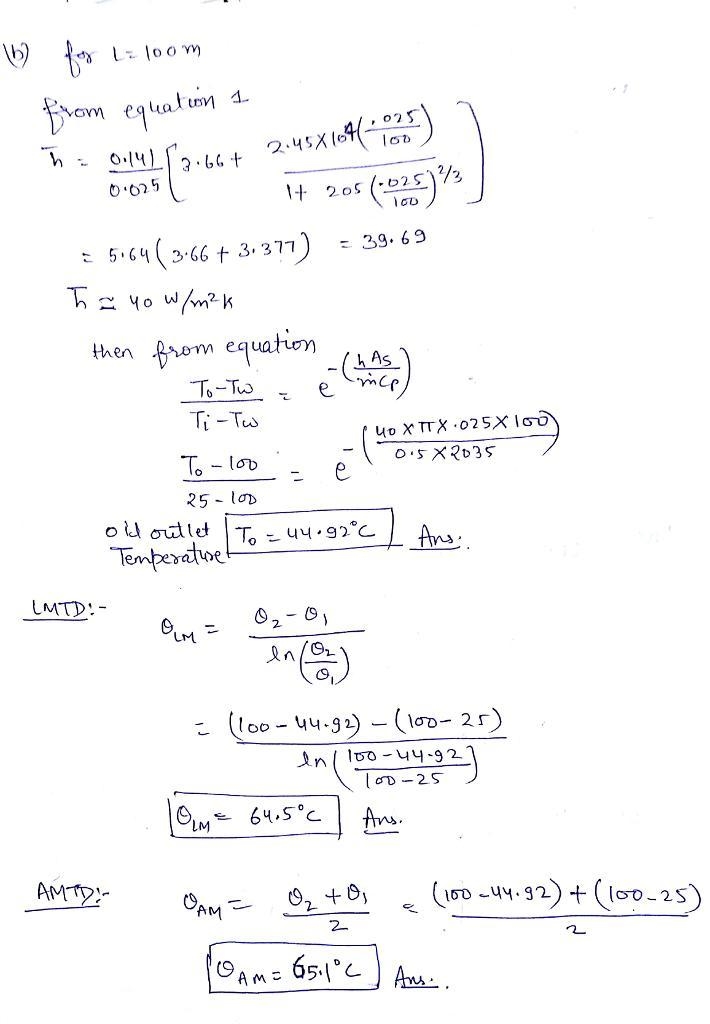 (b) for L = 100 m
from equation 1
h̄ = 0.141/0.025 [3.66 + 2.45×10⁴(.025/100) / 1+ 205(.025/100)^2/3]
= 5.64(3.66 + 3.377) = 39.69
h̄ ≃ 40 W/m²K
then from equation
To-Tw/Ti-Tw = e^-(hAs/ṁCp)
To-100/25-100 = e^-(40×π×.025×100/0.5×2035)
oil outlet Temperature To = 44.92°C Ans.
LMTD:- θLM = θ2-θ1/ln(θ2/θ1)
= (100-44.92)-(100-25)/ln(100-44.92/100-25)
θLM = 64.5°C Ans.
AMTD:- θAM = θ2+θ1/2 = (100-44.92)+(100-25)/2
θAM = 65.1°C Ans.